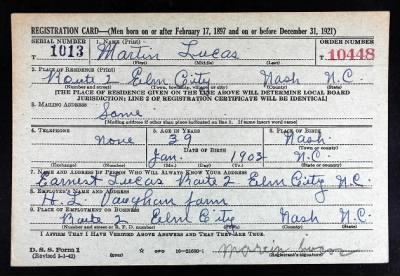 REGISTRATION CARD—(Men born on or after February 17, 1897 and on or before December 31, 1921)
SERIAL NUMBER 1. NAME (Print) ORDER NUMBER
1013 Martin Lucas T 10448
(First) (Middle) (Last)
2. PLACE OF RESIDENCE (Print)
Route 2 Elm City Nash N.C.
(Number and street) (Town, township, village or city) (County) (State)
[THE PLACE OF RESIDENCE GIVEN ON THE LINE ABOVE WILL DETERMINE LOCAL BOARD
JURISDICTION; LINE 2 OF REGISTRATION CERTIFICATE WILL BE IDENTICAL]
3. MAILING ADDRESS
Same
[Mailing address if other than place indicated on line 2. If same insert word same]
4. TELEPHONE 5. AGE IN YEARS 6. PLACE OF BIRTH
None 39 Nash
DATE OF BIRTH (Town or county)
Jan. 1903 N.C.
(Exchange) (Number) (Mo.) (Day) (Yr.) (State or country)
7. NAME AND ADDRESS OF PERSON WHO WILL ALWAYS KNOW YOUR ADDRESS
Earnest Lucas Route 2 Elm City N.C.
8. EMPLOYER'S NAME AND ADDRESS
H. L. Vaughan farm
9. PLACE OF EMPLOYMENT OR BUSINESS
Route 2 Elm City Nash N.C.
(Number and street or R. F. D. number) (Town) (County) (State)
I AFFIRM THAT I HAVE VERIFIED ABOVE ANSWERS AND THAT THEY ARE TRUE.
D. S. S. Form 1
(Revised GPO Lucas